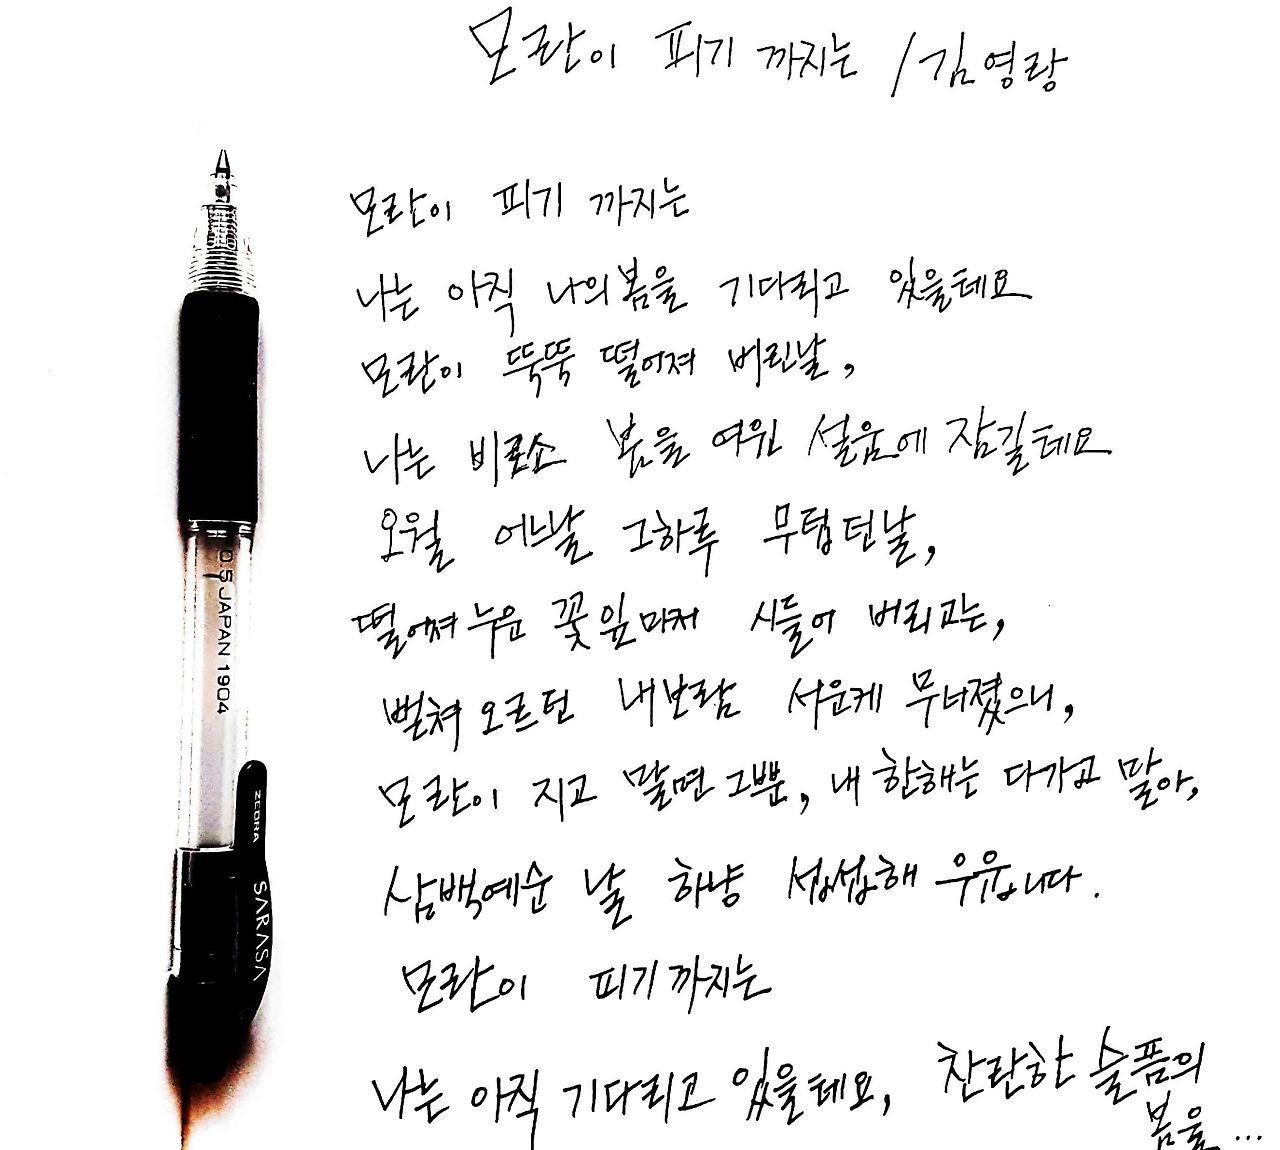 모란이 피기 까지는 / 김영랑
모란이 피기 까지는
나는 아직 나의 봄을 기다리고 있을테요
모란이 뚝뚝 떨어져 버린날,
나는 비로소 봄을 여윈 설움에 잠길테요
오월 어느날 그하루 무덥던날,
떨어져 누운 꽃잎마저 시들어 버리고는,
뻗쳐 오르던 내보람 서운케 무너졌으니,
모란이 지고 말면 그뿐, 내 한해는 다가고 말아,
삼백예순 날 하냥 섭섭해 우웁니다.
모란이 피기 까지는
나는 아직 기다리고 있을테요, 찬란한 슬픔의
봄을...
0.5 JAPAN 1904
ZEBRA
SARASA